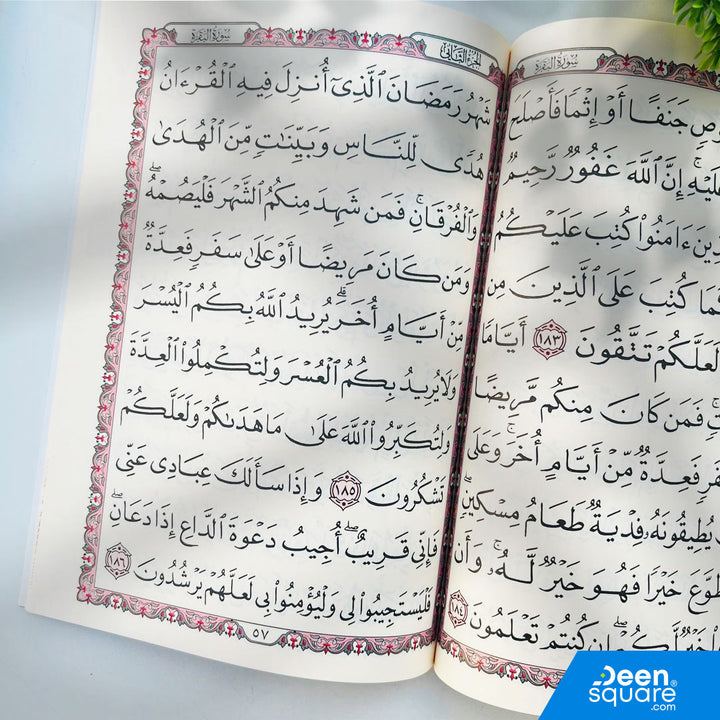 سُورَةُ البَقَرَةِ
جَنَفًا أَوْ إِثْمًا فَأَصْلَحَ
إِنَّ ٱللَّهَ غَفُورٌ رَّحِيمٌ
ءَامَنُوا۟ كُتِبَ عَلَيْكُمُ
كُتِبَ عَلَى ٱلَّذِينَ مِن
لَعَلَّكُمْ تَتَّقُونَ ١٨٣ أَيَّامًا
فَمَن كَانَ مِنكُم مَّرِيضًا
فَعِدَّةٌ مِّنْ أَيَّامٍ أُخَرَۚ وَعَلَى
يُطِيقُونَهُۥ فِدْيَةٌ طَعَامُ مِسْكِينٍۖ
خَيْرًا فَهُوَ خَيْرٌ لَّهُۥۚ وَأَن
خَيْرٌ لَّكُمْ إِن كُنتُمْ تَعْلَمُونَ ١٨٤
الجزء الثاني سُورَةُ البَقَرَةِ
شَهْرُ رَمَضَانَ ٱلَّذِىٓ أُنزِلَ فِيهِ ٱلْقُرْءَانُ
هُدًى لِّلنَّاسِ وَبَيِّنَـٰتٍ مِّنَ ٱلْهُدَىٰ
وَٱلْفُرْقَانِۚ فَمَن شَهِدَ مِنكُمُ ٱلشَّهْرَ فَلْيَصُمْهُۖ
وَمَن كَانَ مَرِيضًا أَوْ عَلَىٰ سَفَرٍ فَعِدَّةٌ
مِّنْ أَيَّامٍ أُخَرَۗ يُرِيدُ ٱللَّهُ بِكُمُ ٱلْيُسْرَ
وَلَا يُرِيدُ بِكُمُ ٱلْعُسْرَ وَلِتُكْمِلُوا۟ ٱلْعِدَّةَ
وَلِتُكَبِّرُوا۟ ٱللَّهَ عَلَىٰ مَا هَدَىٰكُمْ وَلَعَلَّكُمْ
تَشْكُرُونَ ١٨٥ وَإِذَا سَأَلَكَ عِبَادِى عَنِّى
فَإِنِّى قَرِيبٌۖ أُجِيبُ دَعْوَةَ ٱلدَّاعِ إِذَا دَعَانِۖ
فَلْيَسْتَجِيبُوا۟ لِى وَلْيُؤْمِنُوا۟ بِى لَعَلَّهُمْ يَرْشُدُونَ ١٨٦
٥٧
Deen
square®
.com